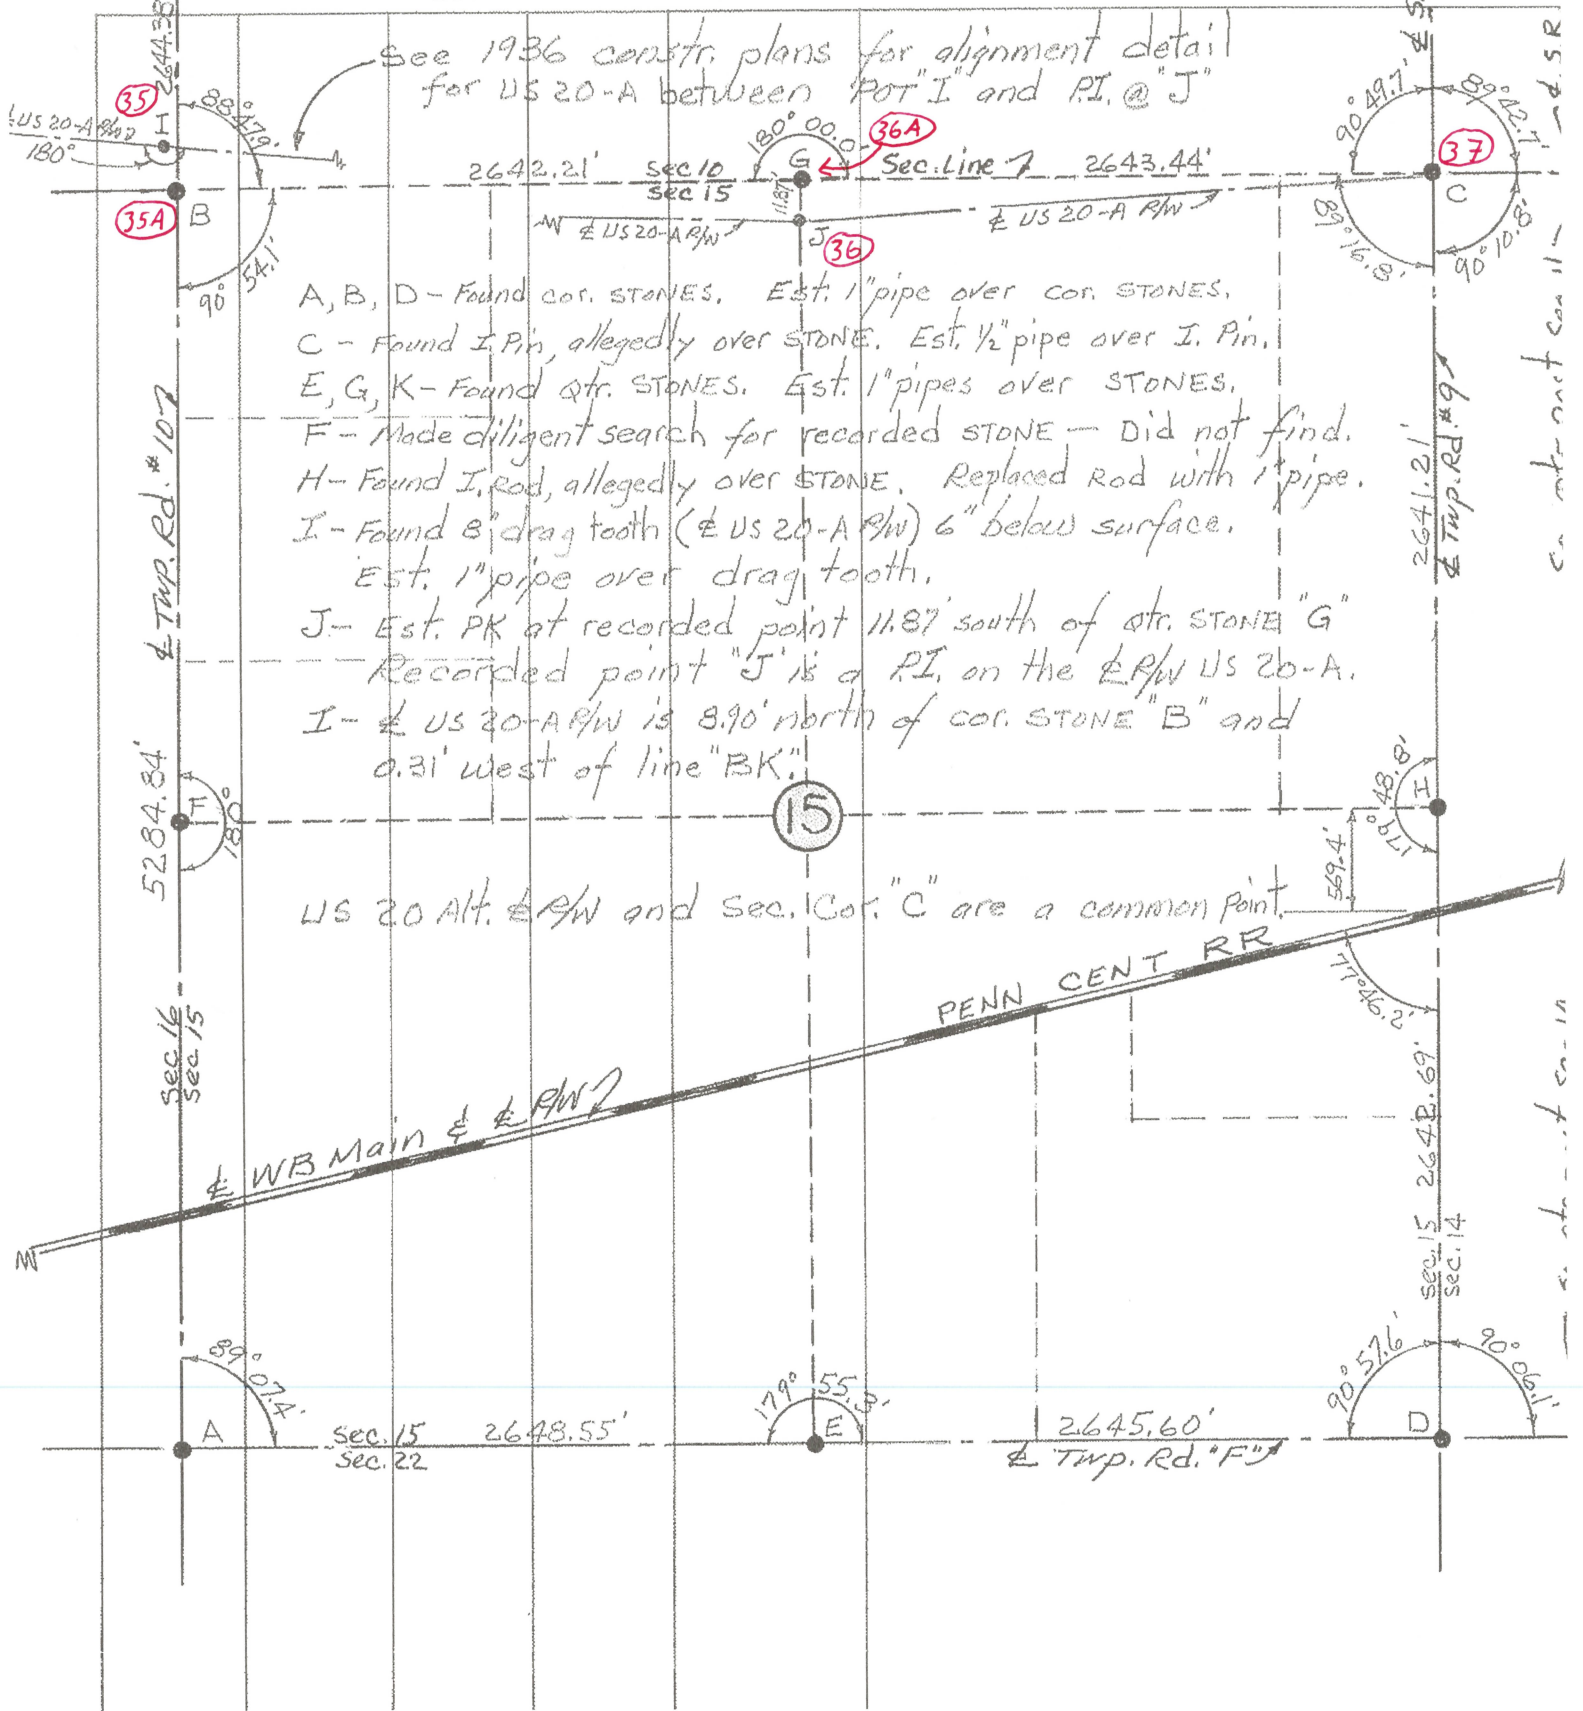 2644.38
See 1936 constr. plans for alignment detail
for US 20-A between POT "I" and P.I. @ "J"
35
88° 47.9'
US 20-A R/W
180°
H
180° 00.0'
36A
90° 49.1'
89° 42.7'
37
2642.21'
Sec 10
Sec 15
G
Sec. Line
2643.44'
11.87'
35A
B
℄ US 20-A R/W
J
36
℄ US 20-A R/W
C
90° 54.1'
89° 16.8'
90° 10.8'
A, B, D - Found cor. STONES. Est. 1" pipe over cor. STONES.
C - Found I. Pin, allegedly over STONE. Est. ½" pipe over I. Pin.
E, G, K - Found Qtr. STONES. Est. 1" pipes over STONES.
F - Made diligent search for recorded STONE — Did not find.
H - Found I. Rod, allegedly over STONE. Replaced Rod with 1" pipe.
I - Found 8" drag tooth (℄ US 20-A R/W) 6" below surface.
Est. 1" pipe over drag tooth.
J - Est. PK at recorded point 11.87' south of Qtr. STONE "G"
Recorded point "J" is a P.I. on the ℄ R/W US 20-A.
I - ℄ US 20-A R/W is 8.90' north of cor. STONE "B" and
0.31' west of line "BK."
℄ Twp. Rd. #10
℄ Twp. Rd. #9
2641.21'
5284.84'
F
180°
15
H
179° 48.8'
569.4'
US 20 Alt. ℄ R/W and Sec. Cor. "C" are a common point.
PENN CENT RR
77° 46.2'
Sec 16
Sec 15
℄ WB Main & ℄ R/W
2648.69'
Sec. 15
Sec. 14
89° 07.4'
A
Sec. 15
Sec. 22
2648.55'
179° 55.3'
E
2645.60'
℄ Twp. Rd. "F"
90° 57.6'
90° 06.1'
D